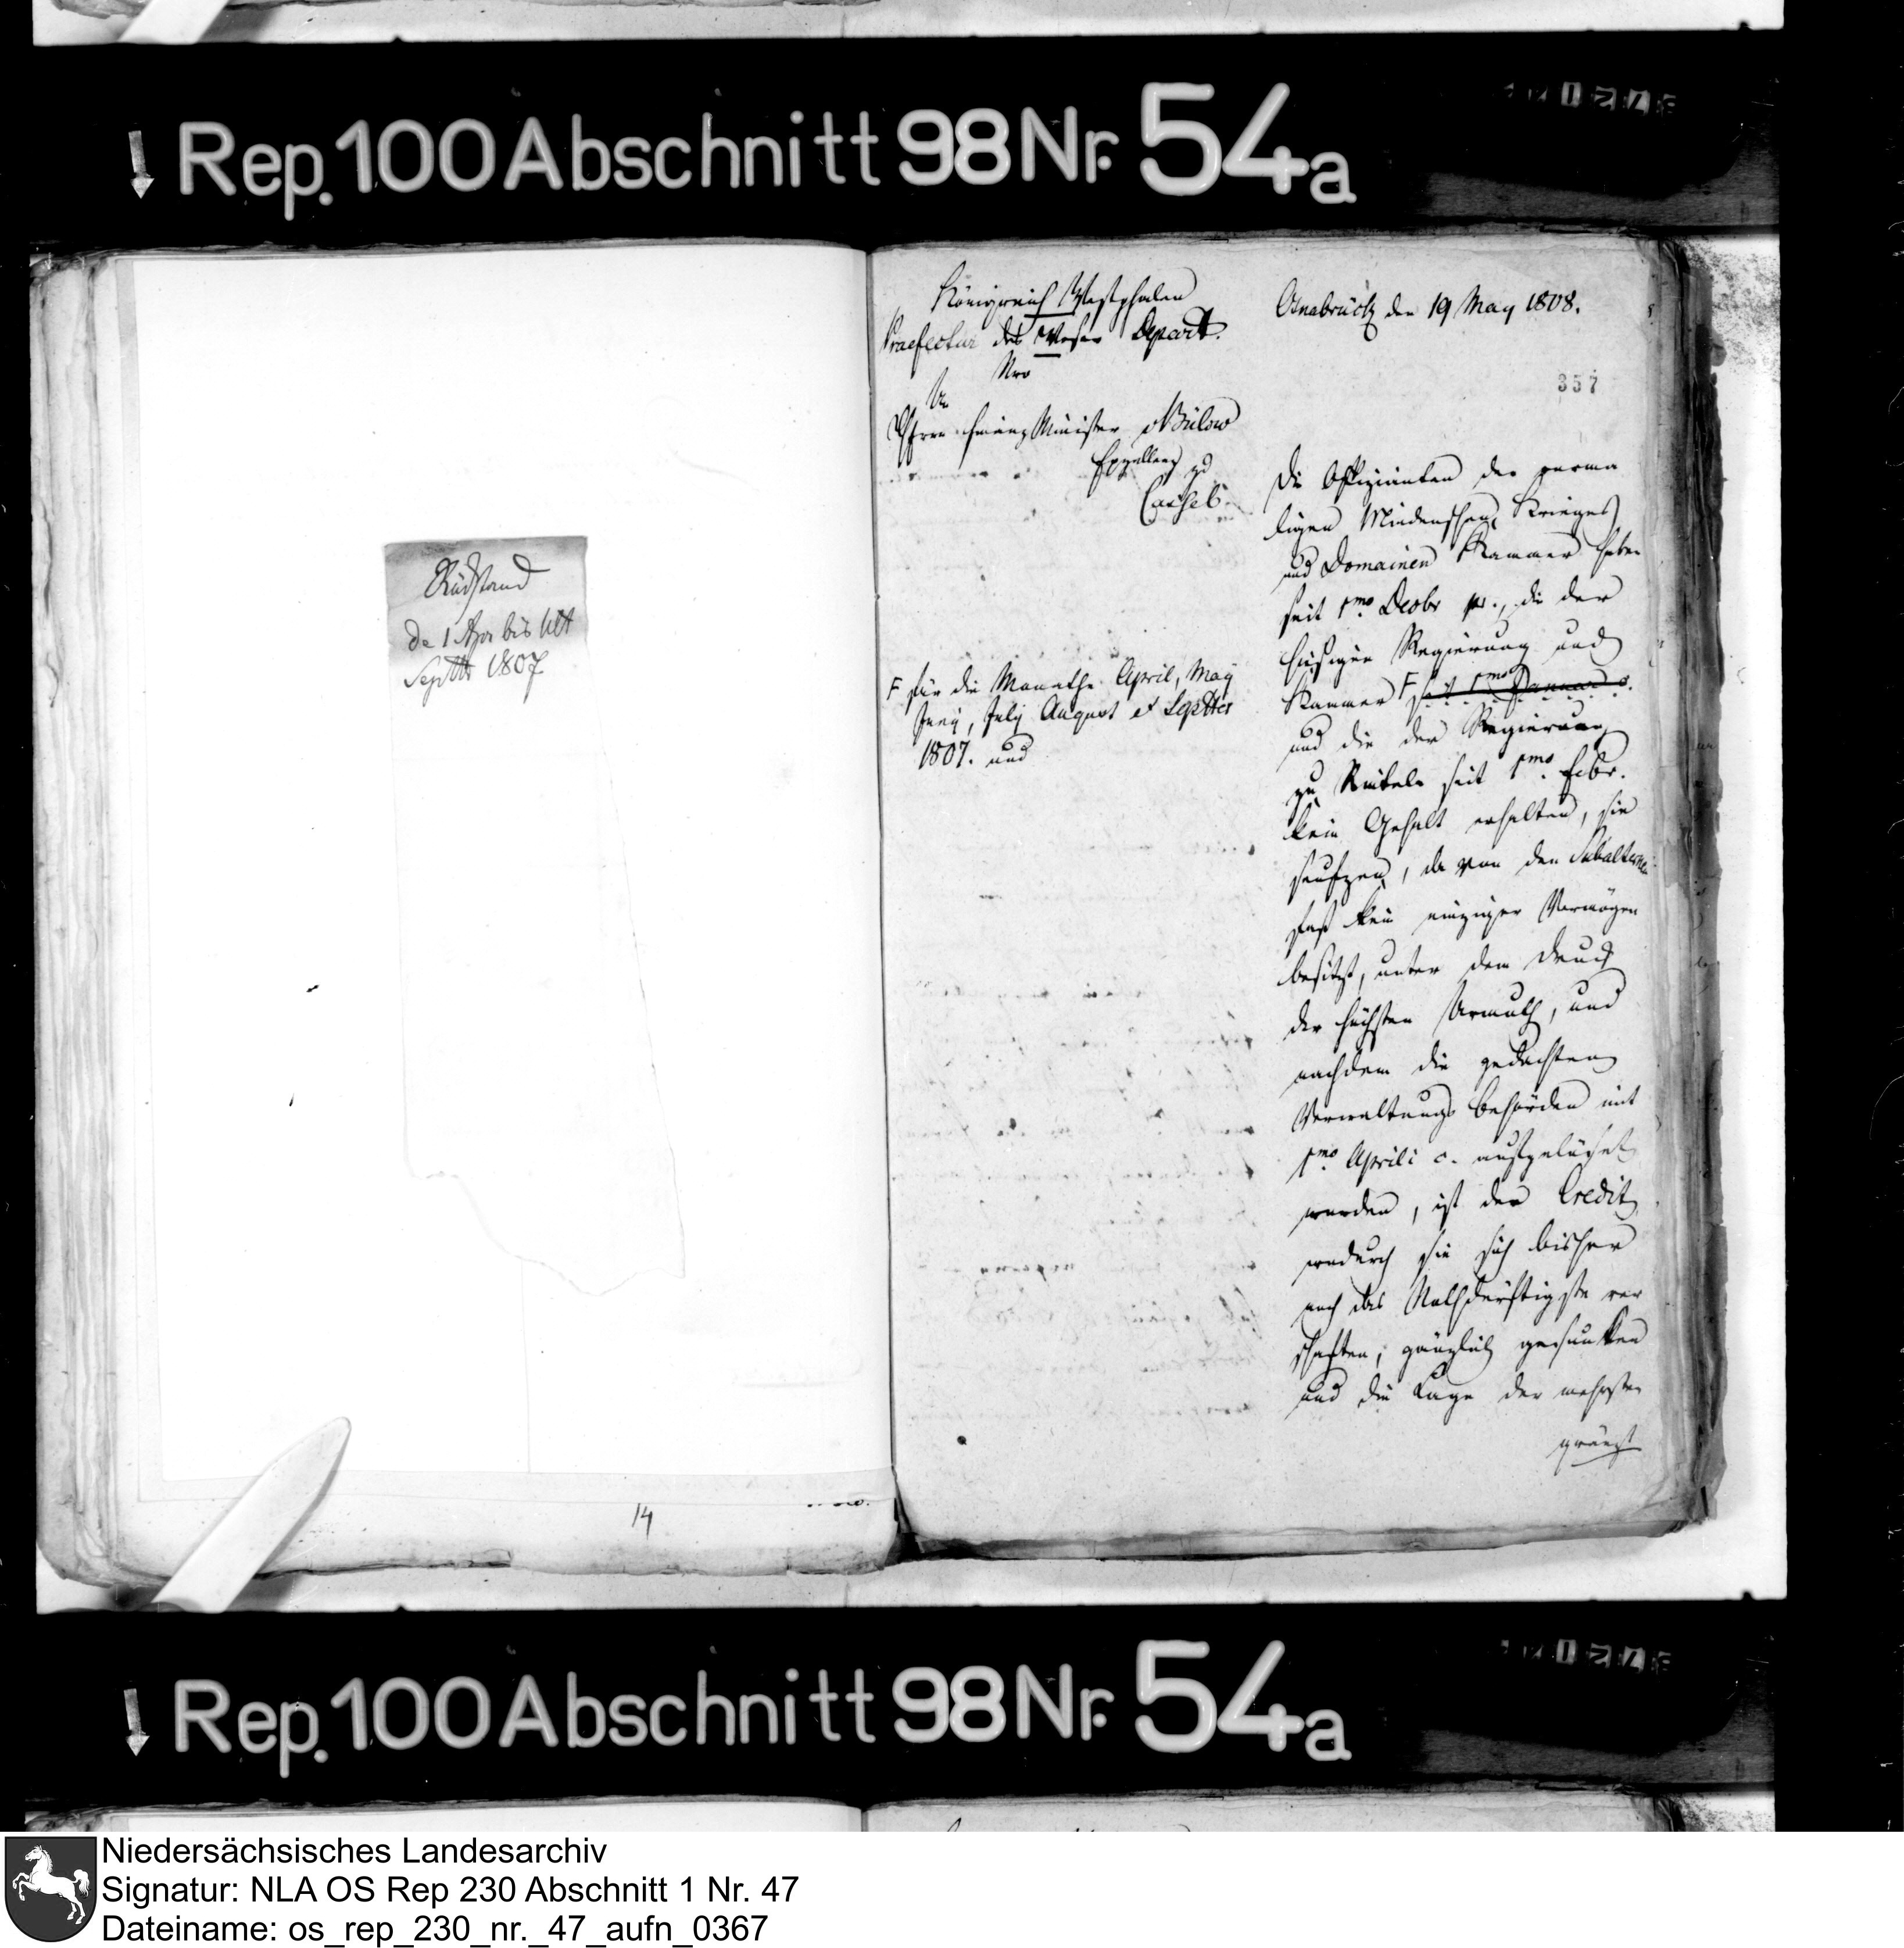 Rep. 100 Abschnitt 98 Nr. 54a
Rückstand
de 1 Apr bis Ult
Septbr 1807
14
Königreich Westphalen
Praefectur des Weser Depart.
Nro
An
Herrn Finanz Minister v Bülow
Excellenz zu
Cassel.
F für die Monathe April, May
Juny, July August et Septbr
1807. und
Osnabrück den 19 May 1808.
357
Die Offizianten der vorma
ligen Mindenschen Krieges
und Domainen Kammer haben
seit 1mo Decbr pr., die der
hiesigen Regierung und
Kammer F seit 1mo Januar c.
und die der Regierung
zu Rinteln seit 1mo Febr.
kein Gehalt erhalten, sie
seufzen, da von den Subalternen
fast kein einziger Vermögen
besitzt, unter dem Druck
der höchsten Armuth, und
nachdem die gedachten
Verwaltungs Behörden mit
1mo Aprili c. aufgelöset
worden, ist der Credit
wodurch sie sich bisher
noch das Nothdürftigste ver
schafften, gänzlich gesunken
und die Lage der mehrsten
gränzt
Rep. 100 Abschnitt 98 Nr. 54a
Niedersächsisches Landesarchiv
Signatur: NLA OS Rep 230 Abschnitt 1 Nr. 47
Dateiname: os_rep_230_nr._47_aufn_0367